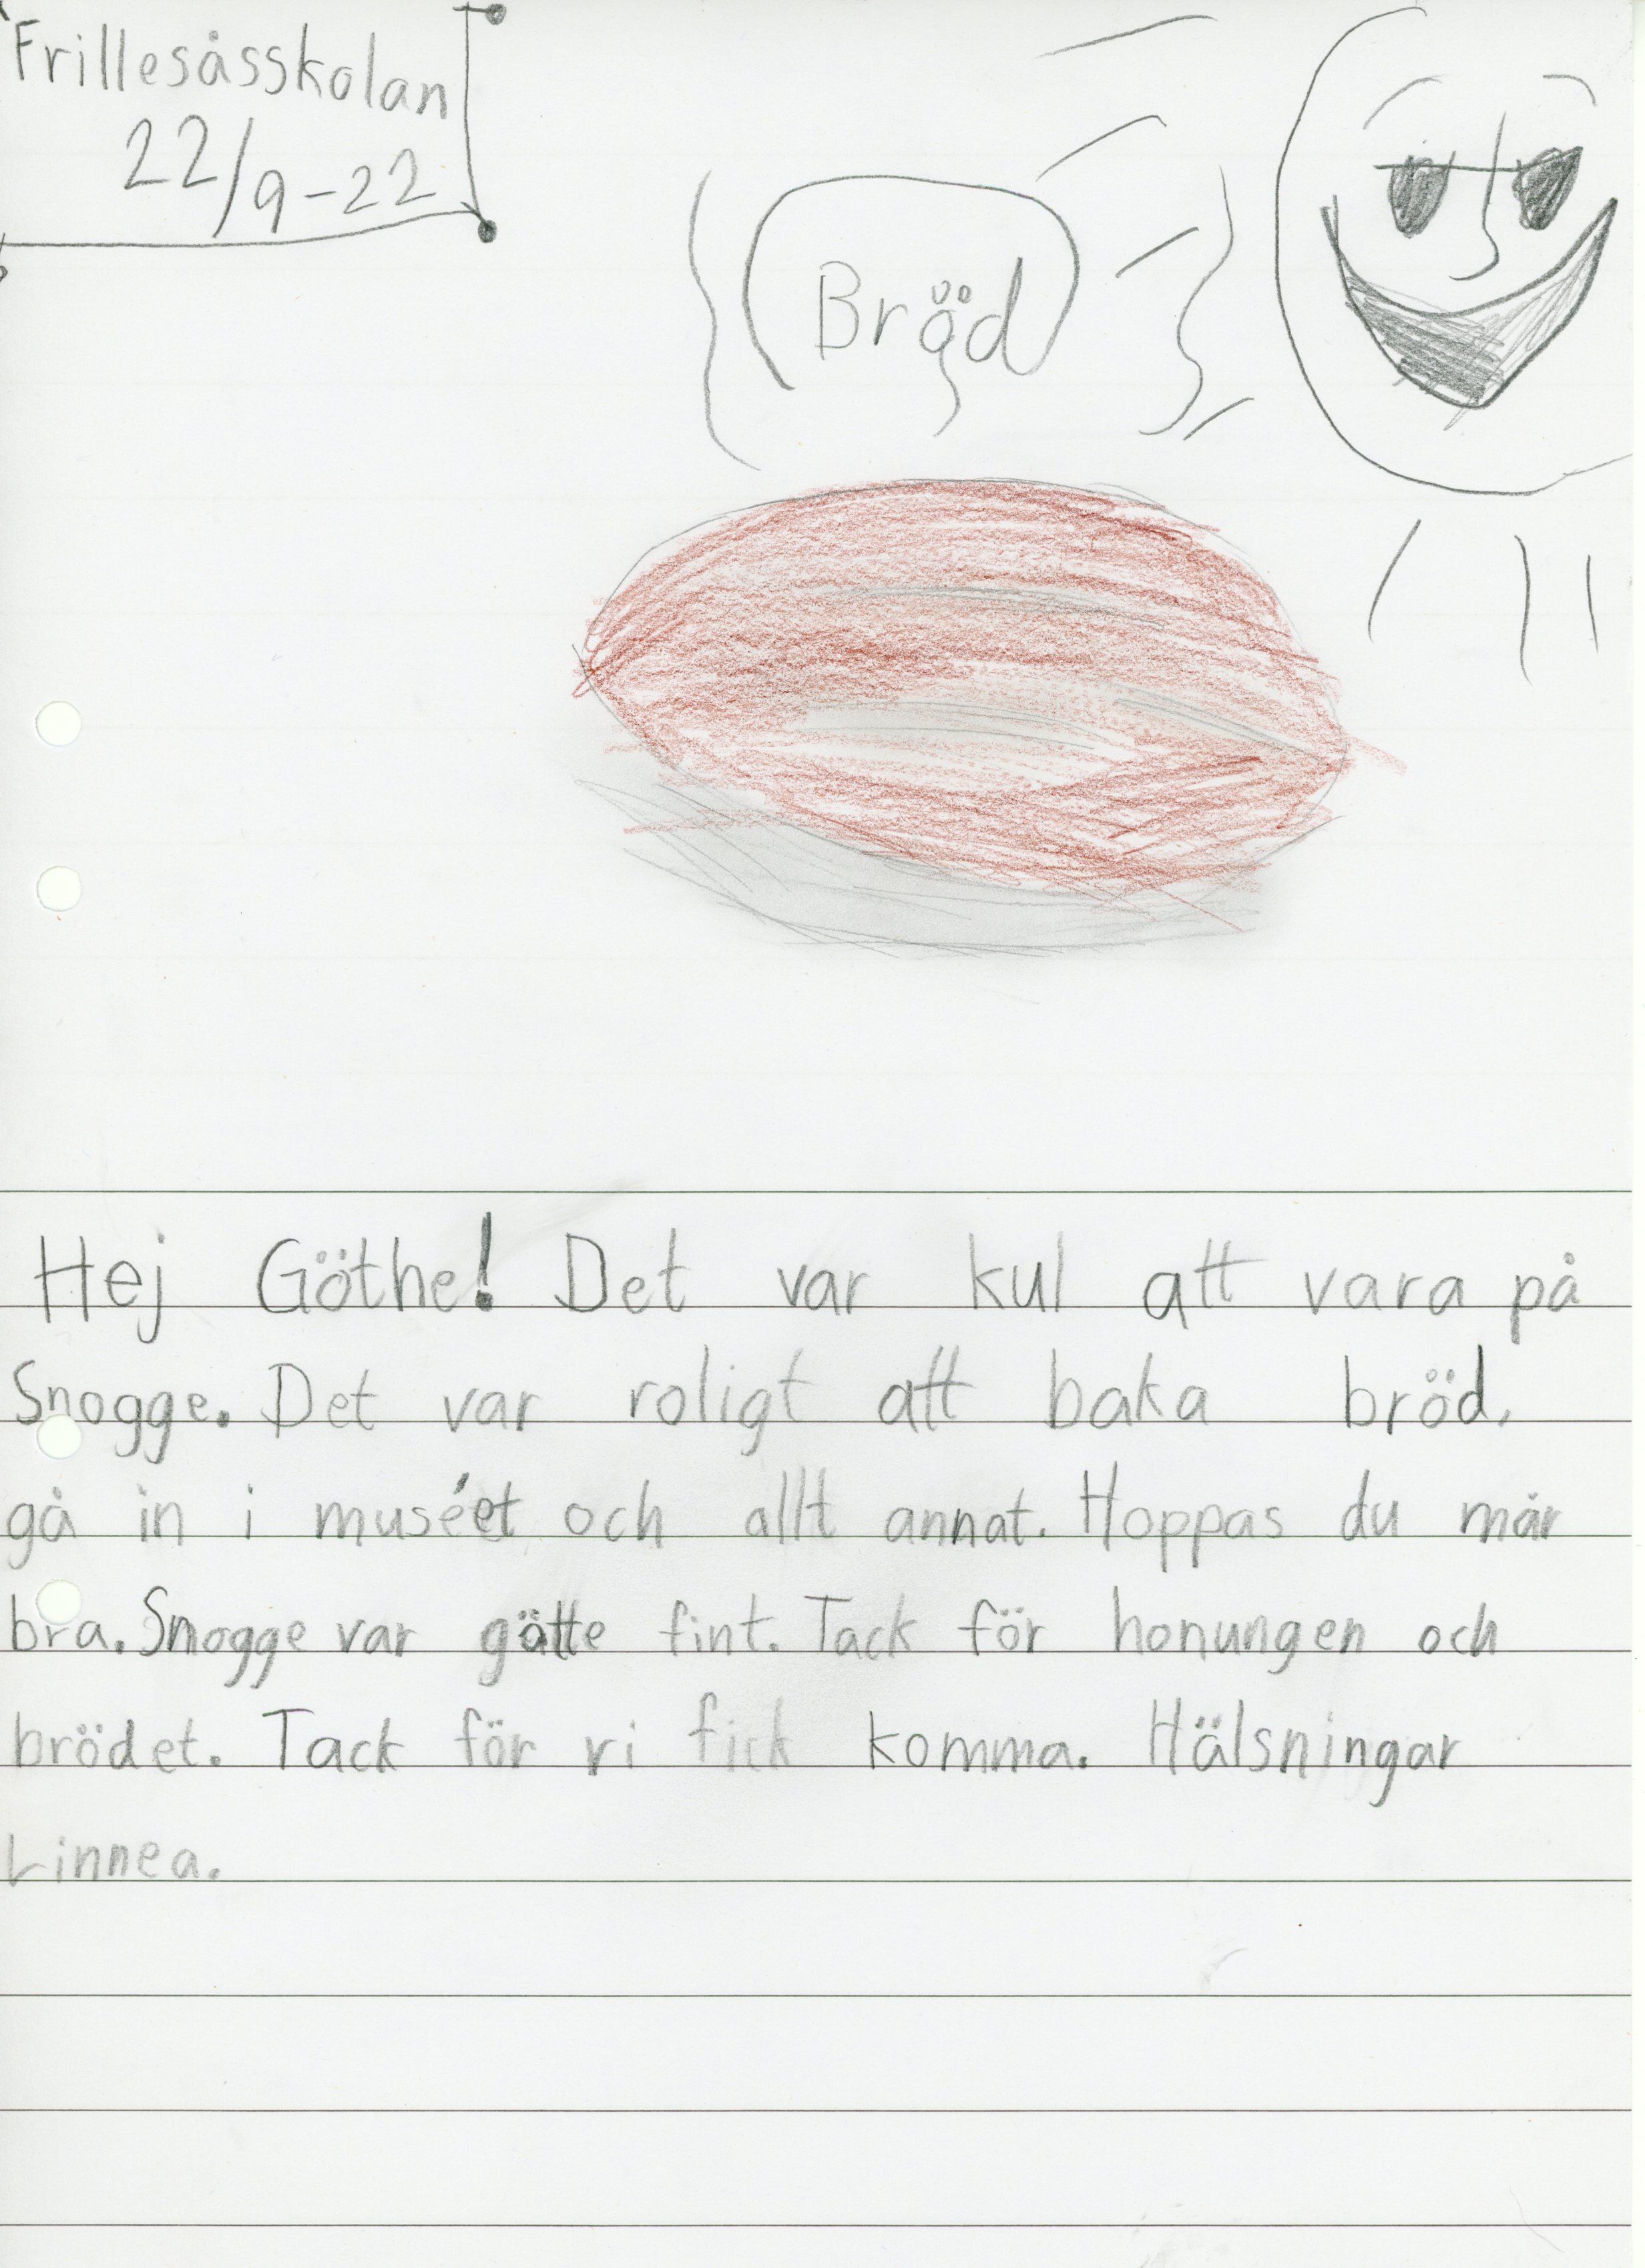 Frillesåsskolan
22/9-22
Bröd
Hej Göthe! Det var kul att vara på
Snogge. Det var roligt att baka bröd,
gå in i muséet och allt annat. Hoppas du mår
bra. Snogge var gätte fint. Tack för honungen och
brödet. Tack för vi fick komma. Hälsningar
Linnea.